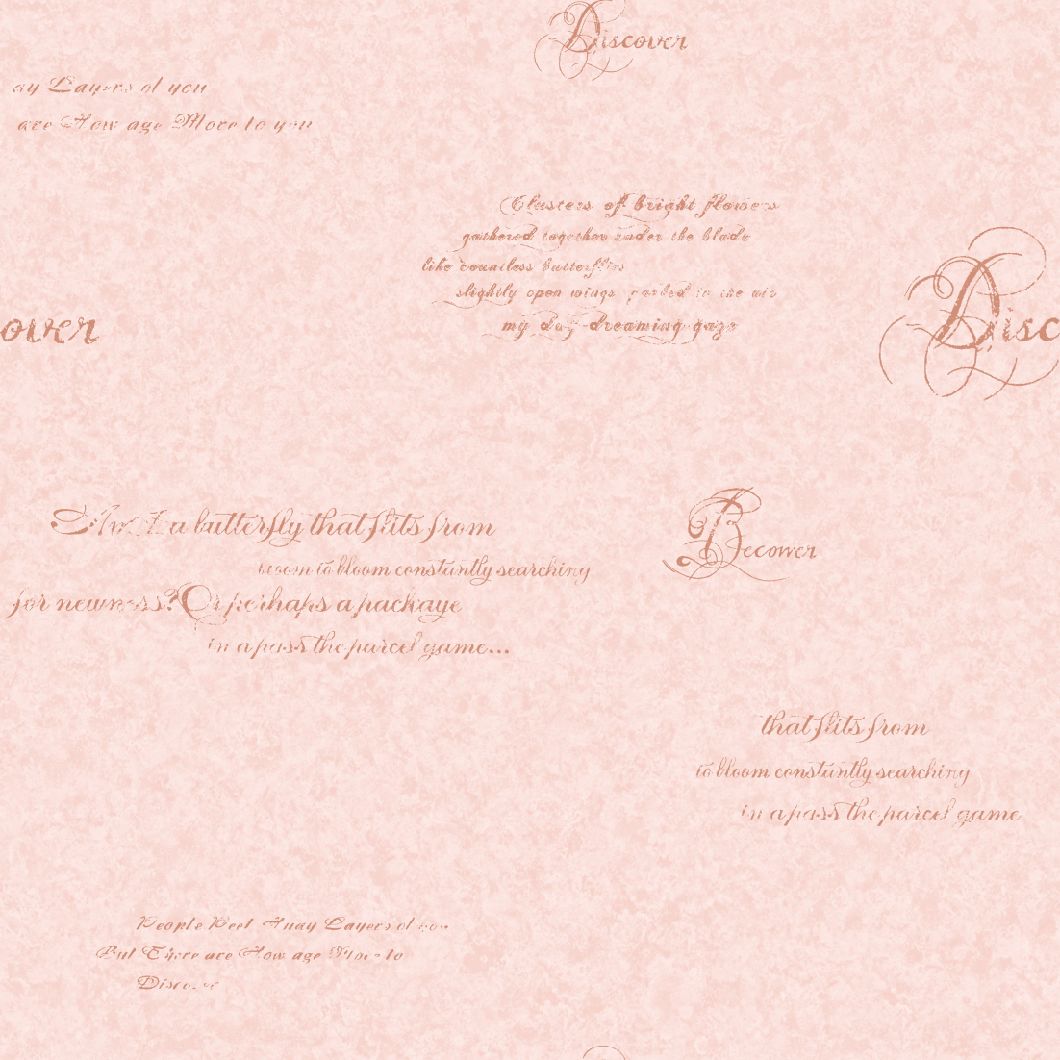 Discover
ay Layers of you
are How age More to you
Clusters of bright flowers
gathered together under the blade
like countless butterflies
slightly open wings parted in the air
my day-dreaming gaze
over
Disc
a butterfly that flits from
to bloom constantly searching
for newness? Or perhaps a package
in a pass the parcel game...
Becover
that flits from
to bloom constantly searching
in a pass the parcel game
People Peel Away Layers of you
But There are How age More to
Discover